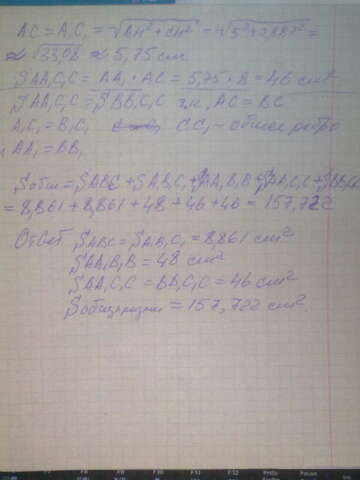 AC = A₁C₁ = √AH² + CH² = √5² + 2,887² =
≈ √33,08 ≈ 5,75 cm
SAA₁C₁C = AA₁ · AC = 5,75 · 8 = 46 cm²
SAA₁C₁C = SBB₁C₁C т.к. AC = BC
A₁C₁ = B₁C₁ CC₁ - общее ребро
и AA₁ = BB₁
Sобщ = SABC + SA₁B₁C₁ + SAA₁B₁B + SAA₁C₁C + SBB₁C₁C
= 8,861 + 8,861 + 48 + 46 + 46 = 157,722
Ответ SABC = SA₁B₁C₁ = 8,861 cm²
SAA₁B₁B = 48 cm²
SAA₁C₁C = BB₁C₁C = 46 cm²
Sобщ призмы = 157,722 cm²
F8 F9 F10 F11 F12 PrtSc Pause